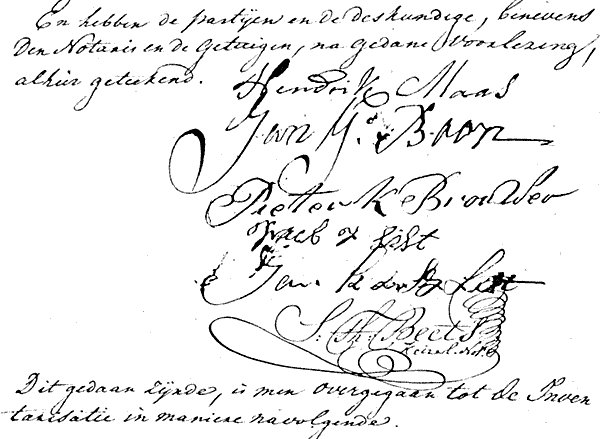 En hebben de partijen en de deskundige, benevens
den Notaris en de Getuigen, na gedane voorlezing,
alhier geteekend.
Hendrik Maas
Jan Boon
Pieter Brouwer
Jan
S. Th. Beets
Dit gedaan zijnde, is men overgegaan tot de Inven
tarisatie in maniere navolgende.